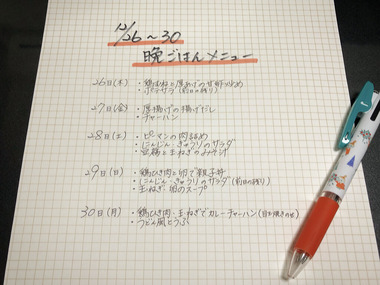 12/26〜30
晩ごはんメニュー
26日(木) ・鶏むねと厚あげの甘酢いため
・ポテサラ(前日の残り)
27日(金) ・厚揚げの揚げだし
・チャーハン
28日(土) ・ピーマンの肉詰め
・にんじん・きゅうりのサラダ
・玉ねぎのみそ汁
29日(日) ・鶏ひき肉と卵で親子丼
・にんじん・きゅうりのサラダ(前日の残り)
・玉ねぎ・卵のスープ
30日(月) ・鶏ひき肉・玉ねぎでカレーチャーハン(目玉焼きのせ)
・うどん風とうふ